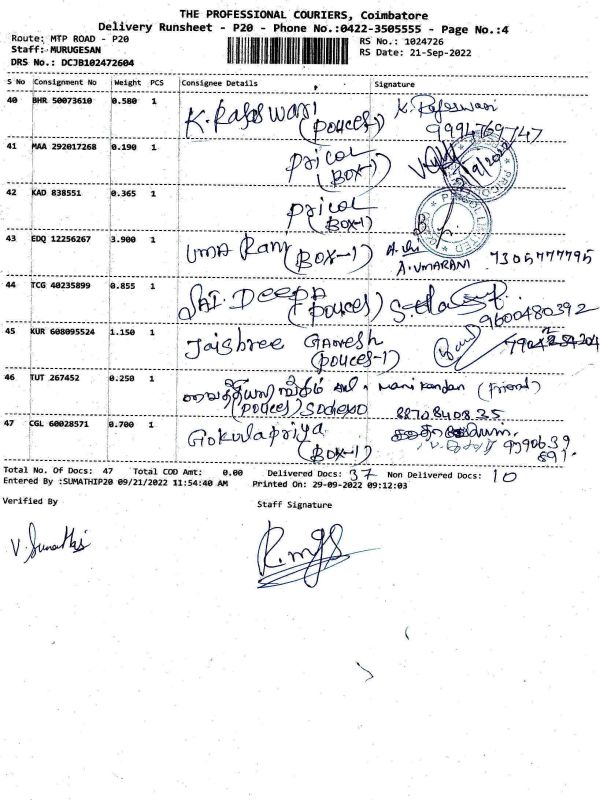 THE PROFESSIONAL COURIERS, Coimbatore
Delivery Runsheet - P20 - Phone No.:0422-3505555 - Page No.:4
Route: MTP ROAD - P20
RS No.: 1024726
Staff: MURUGESAN
RS Date: 21-Sep-2022
DRS No.: DCJB102472604
S No Consignment No Weight PCS Consignee Details Signature
40 BHR 50073610 0.580 1 K. Rajeswari (Pouces) K. Rajeswari
9994769747
41 MAA 292017268 0.190 1 Pricol
(BOX-1)
42 KAD 838551 0.365 1 Pricol
(BOX-1)
43 EDQ 12256267 3.900 1 UMA Rani (BOX-1) A. UMARANI 7305777795
44 TCG 40235899 0.855 1 SAI. DEEPA (Pouces)
9600480392
45 KUR 608095524 1.150 1 Jaishree GANESH
(Pouces-1)
46 TUT 267452 0.250 1 Manikandan (Friend)
(Pouces) Sodexo 8870840835
47 CGL 60028571 0.700 1 Gokulapriya
(BOX-1)
Total No. Of Docs: 47 Total COD Amt: 0.00 Delivered Docs: 37 Non Delivered Docs: 10
Entered By :SUMATHIP20 09/21/2022 11:54:40 AM Printed On: 29-09-2022 09:12:03
Verified By Staff Signature
V. Sumathi